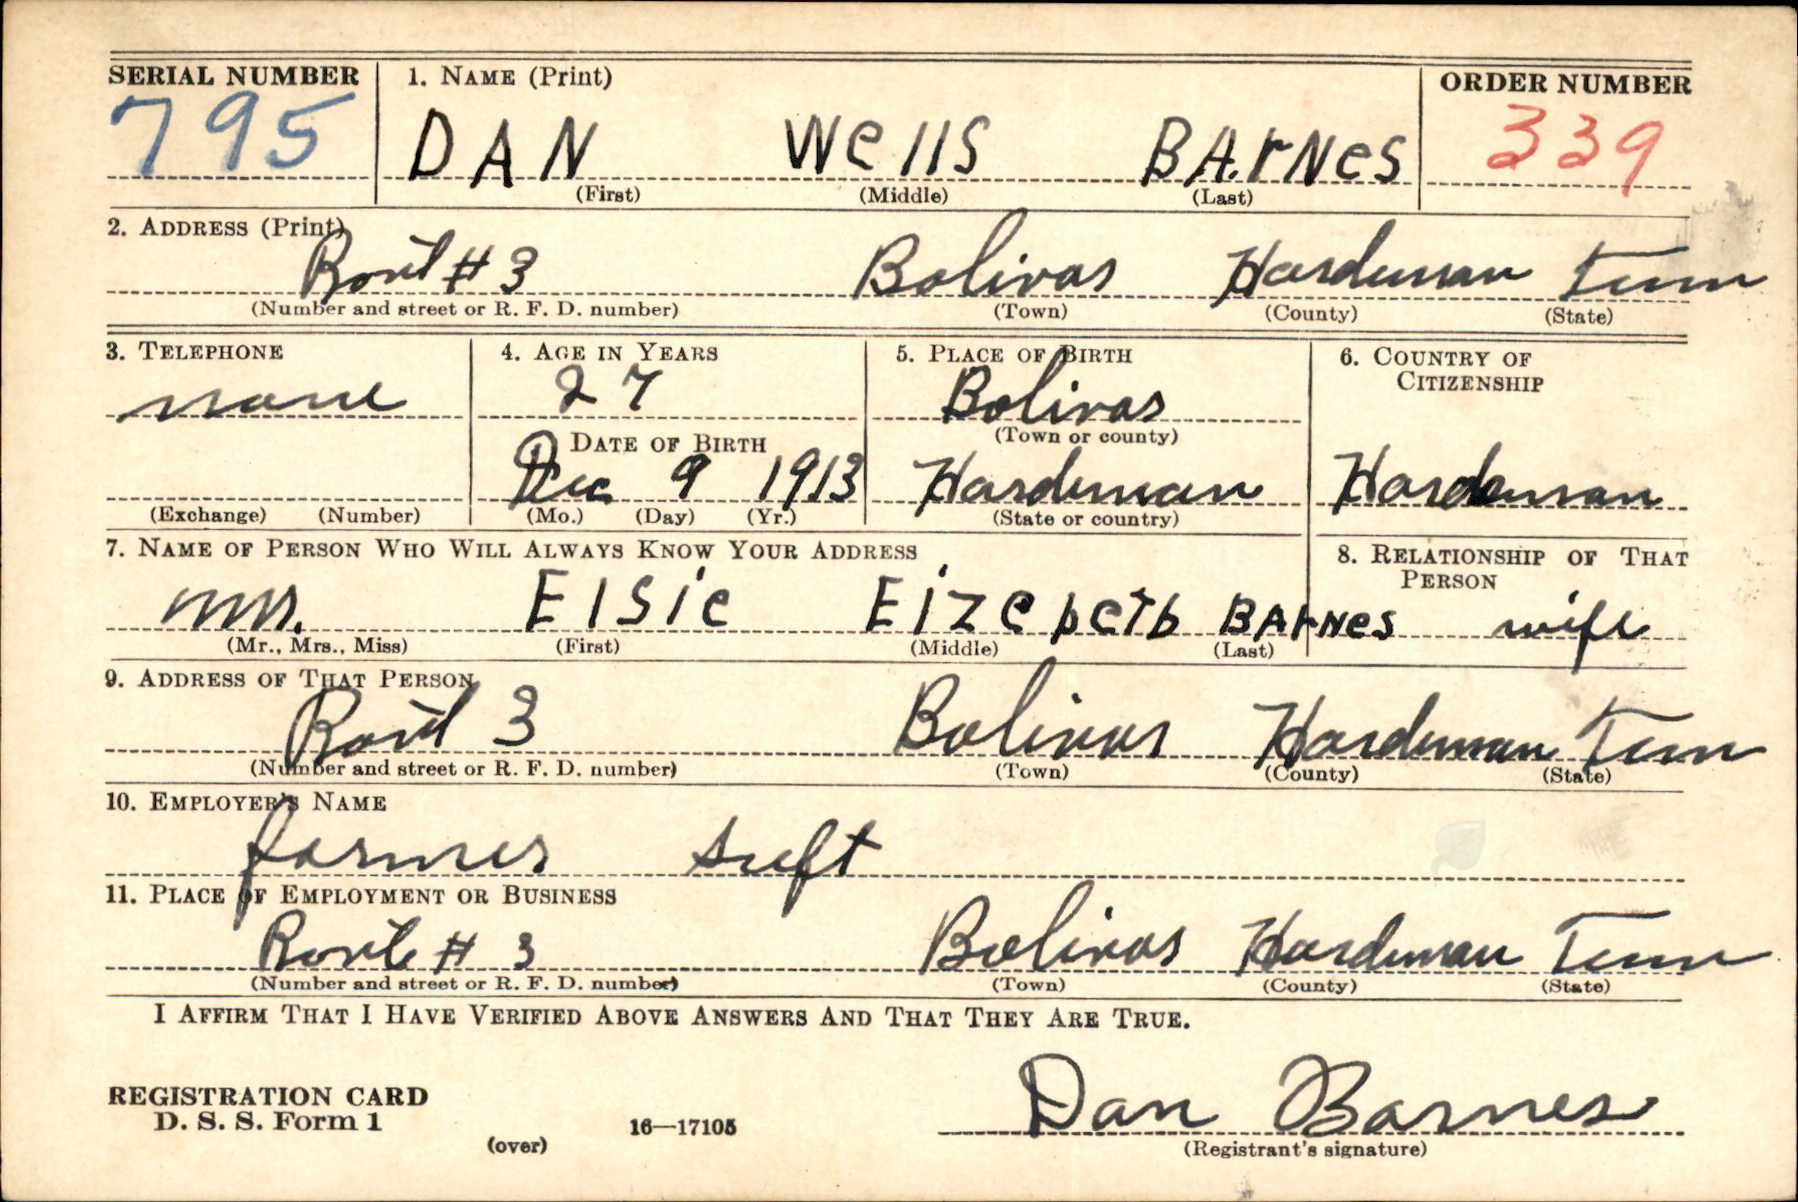 SERIAL NUMBER 1. NAME (Print) ORDER NUMBER
795 DAN Wells BArNes 339
(First) (Middle) (Last)
2. ADDRESS (Print)
Rout #3 Bolivar Hardeman Tenn
(Number and street or R. F. D. number) (Town) (County) (State)
3. TELEPHONE 4. AGE IN YEARS 5. PLACE OF BIRTH 6. COUNTRY OF CITIZENSHIP
none 27 Bolivar
DATE OF BIRTH (Town or county)
Dec 9 1913 Hardeman Hardeman
(Exchange) (Number) (Mo.) (Day) (Yr.) (State or country)
7. NAME OF PERSON WHO WILL ALWAYS KNOW YOUR ADDRESS 8. RELATIONSHIP OF THAT PERSON
Mrs. Elsie Eizebeth BArNes wife
(Mr., Mrs., Miss) (First) (Middle) (Last)
9. ADDRESS OF THAT PERSON
Rout 3 Bolivar Hardeman Tenn
(Number and street or R. F. D. number) (Town) (County) (State)
10. EMPLOYER'S NAME
farmer
11. PLACE OF EMPLOYMENT OR BUSINESS
Route # 3 Bolivar Hardeman Tenn
(Number and street or R. F. D. number) (Town) (County) (State)
I AFFIRM THAT I HAVE VERIFIED ABOVE ANSWERS AND THAT THEY ARE TRUE.
REGISTRATION CARD
D. S. S. Form 1 (over) 16—17105 Dan Barnes
(Registrant's signature)